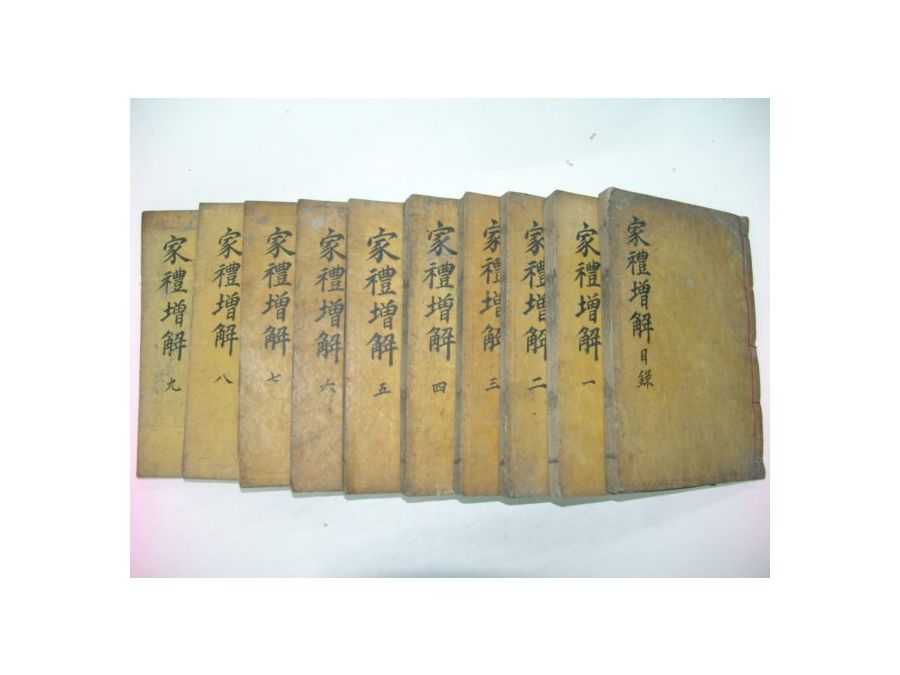 家禮增解目錄
家禮增解一
家禮增解二
家禮增解三
家禮增解四
家禮增解五
家禮增解六
家禮增解七
家禮增解八
家禮增解九